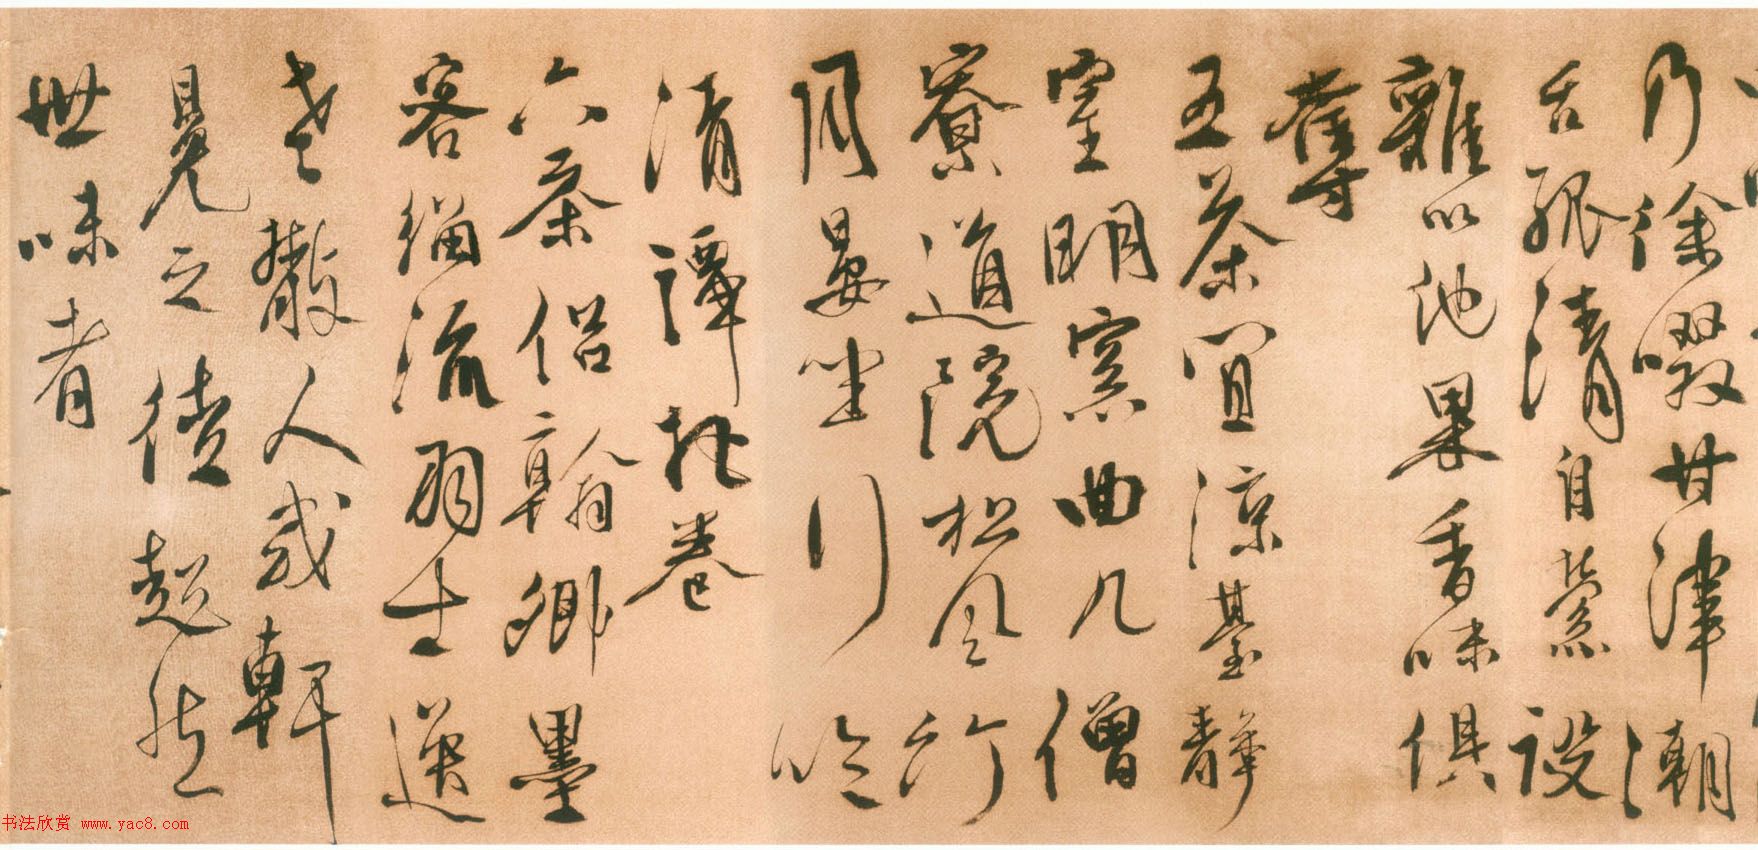 乃徐啜甘津潮
舌孤清自縈設
雜以他果香味俱
奪
五茶宜涼臺靜
室明窗曲几僧
寮道院松風竹
月晏坐行吟
清譚把卷
六茶侶翰卿墨
客緇流羽士逸
老散人或軒
冕之徒超然
世味者
书法欣赏 www.yac8.com